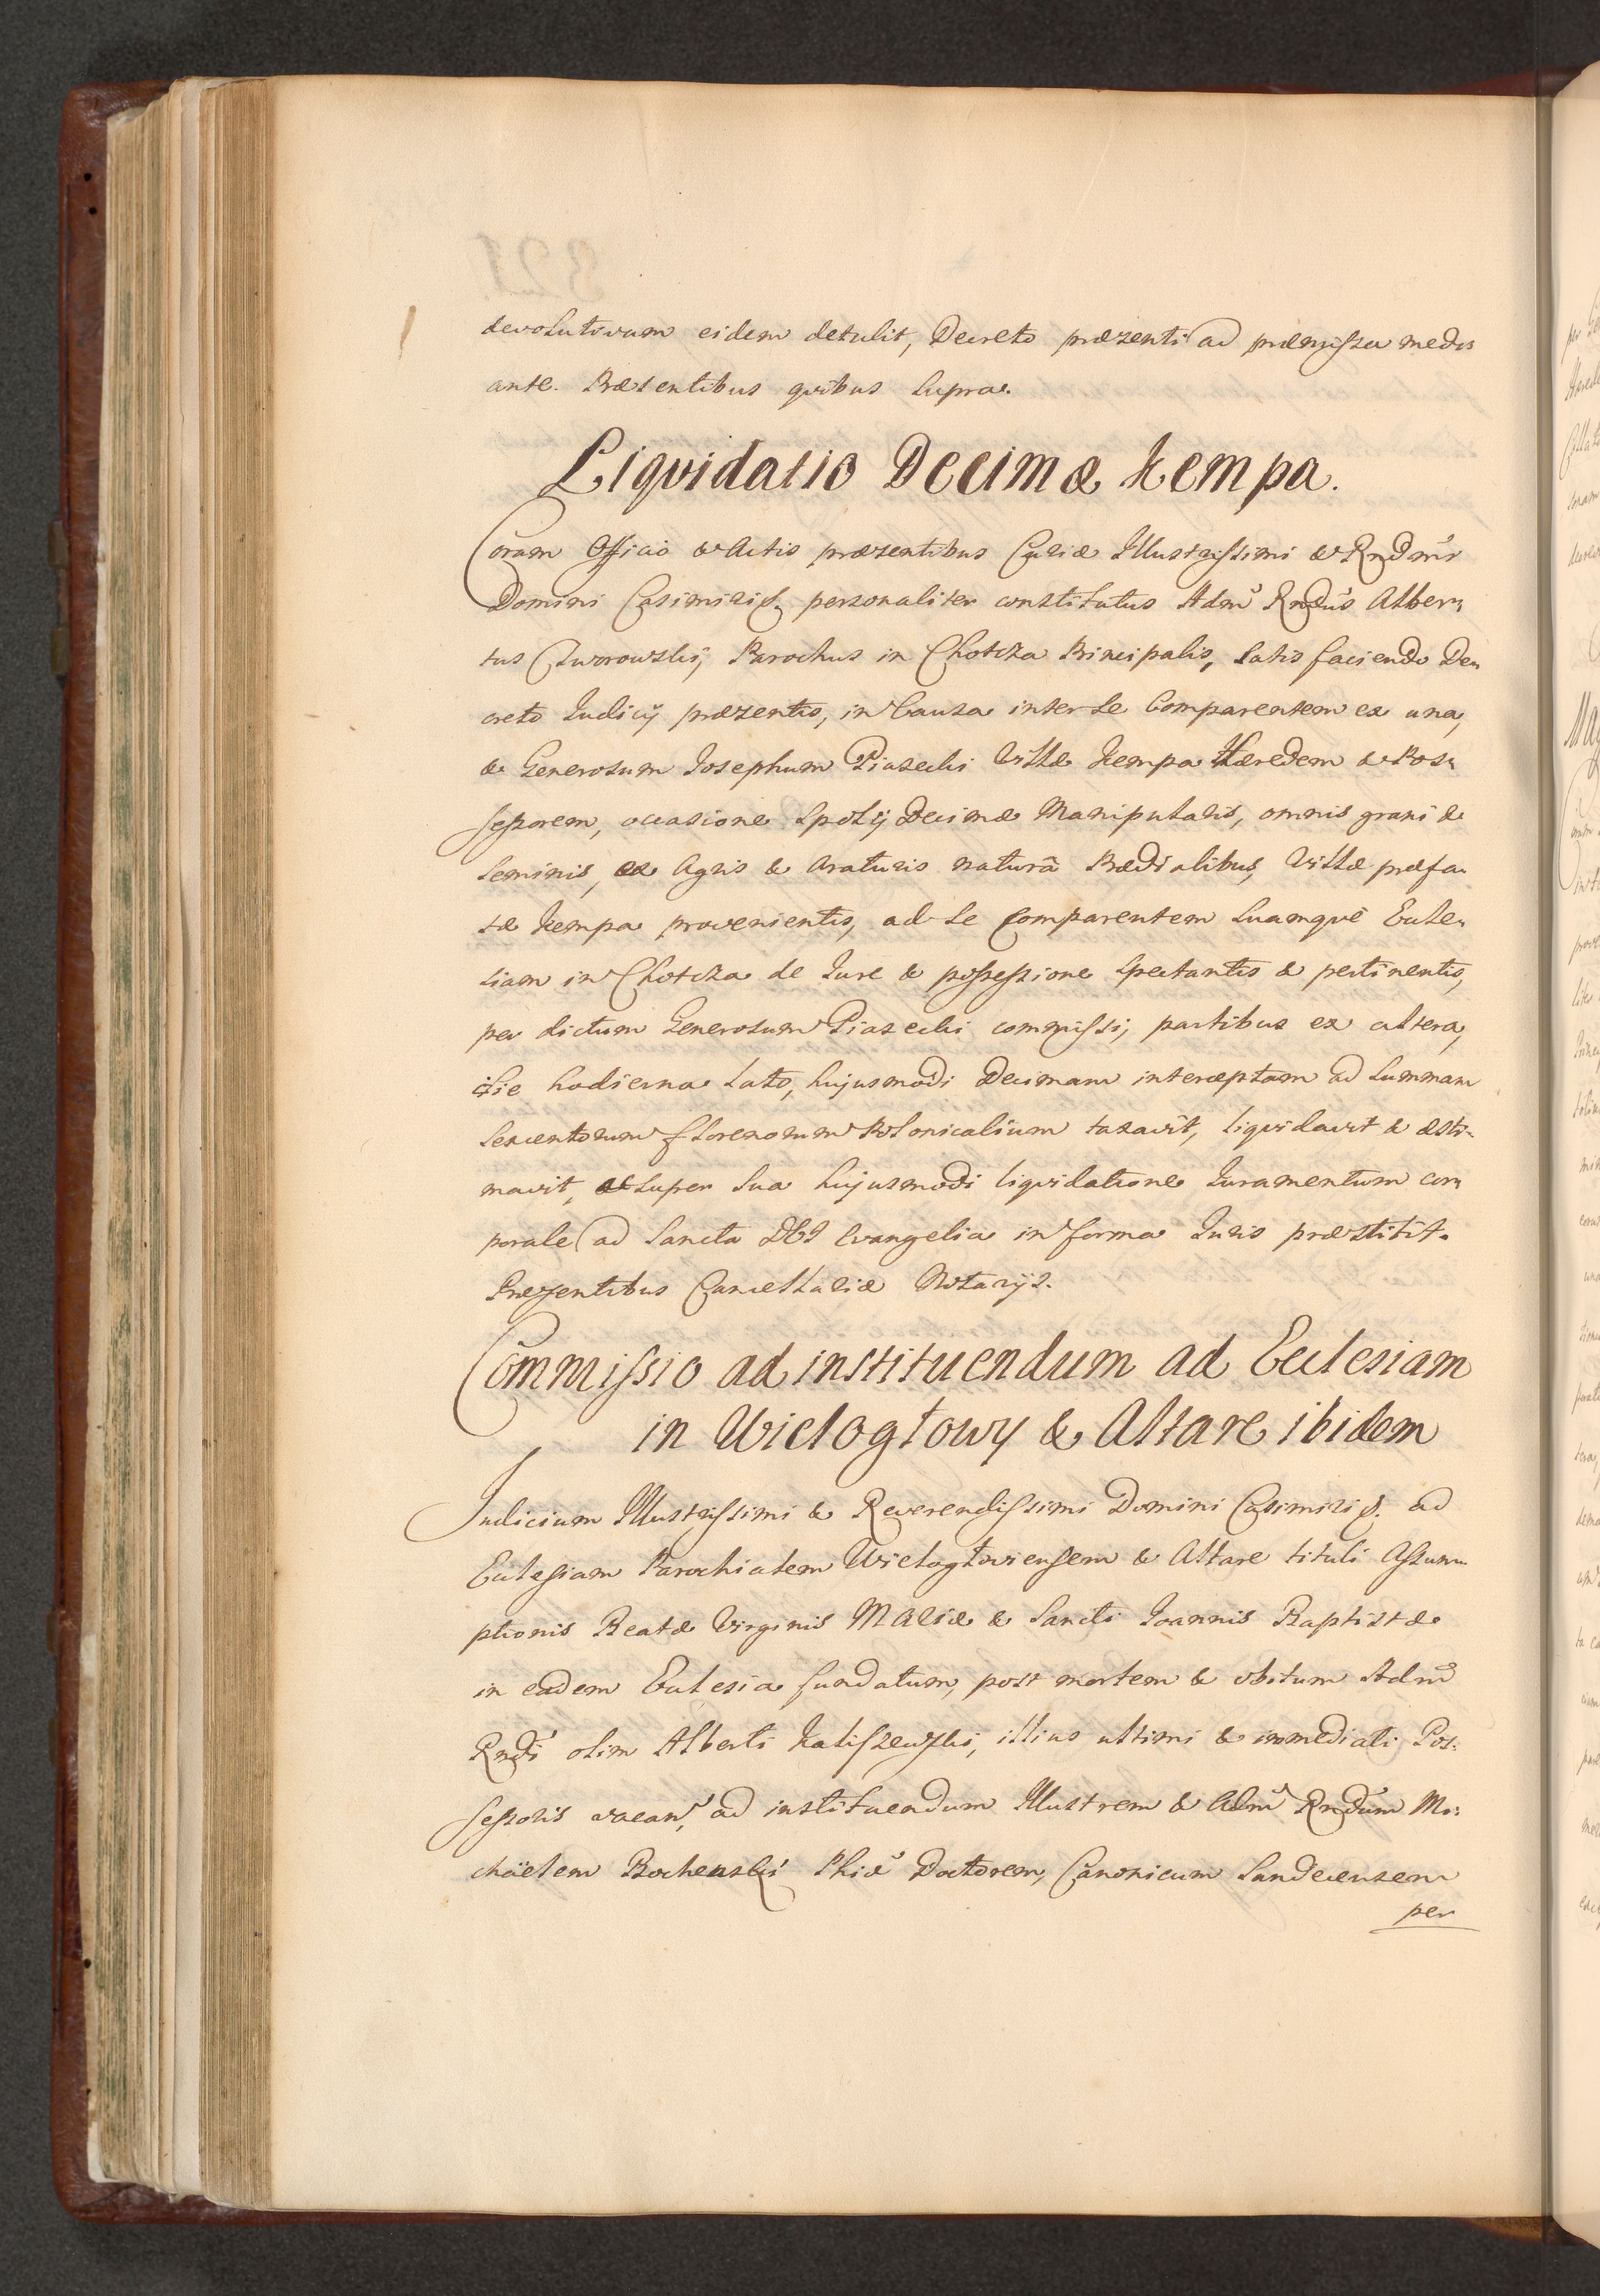 devolutivam eidem detulit, Decreto præzenti ad præmissa medi-
ante. Præsentibus qvibus supra.
Liqvidatio Decimæ Kempa.
Coram Officio & Actis præzentibus Curiæ Illustrissimi & Rndmi
Domini Casimiri S. personaliter constitutus Adm Rndus Alber-
tus Czworowski, Parochus in Chotcza Principalis, satisfaciendo De-
creto Iudicij præzentis, in Causa inter se Comparentem ex una,
& Generosum Iosephum Piasecki Villæ Kempa Hæredem & Pos-
sessorem, occasione spolij Decimæ Manipularis, omnis grani &
seminis, ex Agris & Araturis naturâ Prædialibus, Villæ præfa-
tæ Kempa provenientis, ad se Comparentem suamqvè Eccle-
siam in Chotcza de Iure & possessione spectantis & pertinentis,
per dictum Generosum Piasecki commissi, partibus ex altera,
die hodierna lato, hujusmodi Decimam interceptam ad summam
sexcentorum florenorum Polonicalium taxavit, liqvidavit & æsti-
mavit, et super sua hujusmodi liqvidatione Iuramentum cor-
porale ad Sancta DEI Evangelia in forma Iuris præstitit.
Præzentibus Cancellariæ Notarijs.
Commissio ad instituendum ad Ecclesiam
in Wielogłowy & Altare ibidem
Iudicium Illustrissimi & Reverendissimi Domini Casimiri S. ad
Ecclesiam Parochialem Wielogłoviensem & Altare tituli Assum-
ptionis Beatæ Virginis MARIæ & Sancti Ioannis Baptistæ
in eadem Ecclesia fundatum, post mortem & obitum Adm
Rndi olim Alberti Kaliszewski, illius ultimi & immediati Pos-
sessoris vacan, ad instituendum Illustrem & Adm Rndum Mi-
chäelem Bochenski Phiæ Doctorem, Canonicum Sandecensem
per